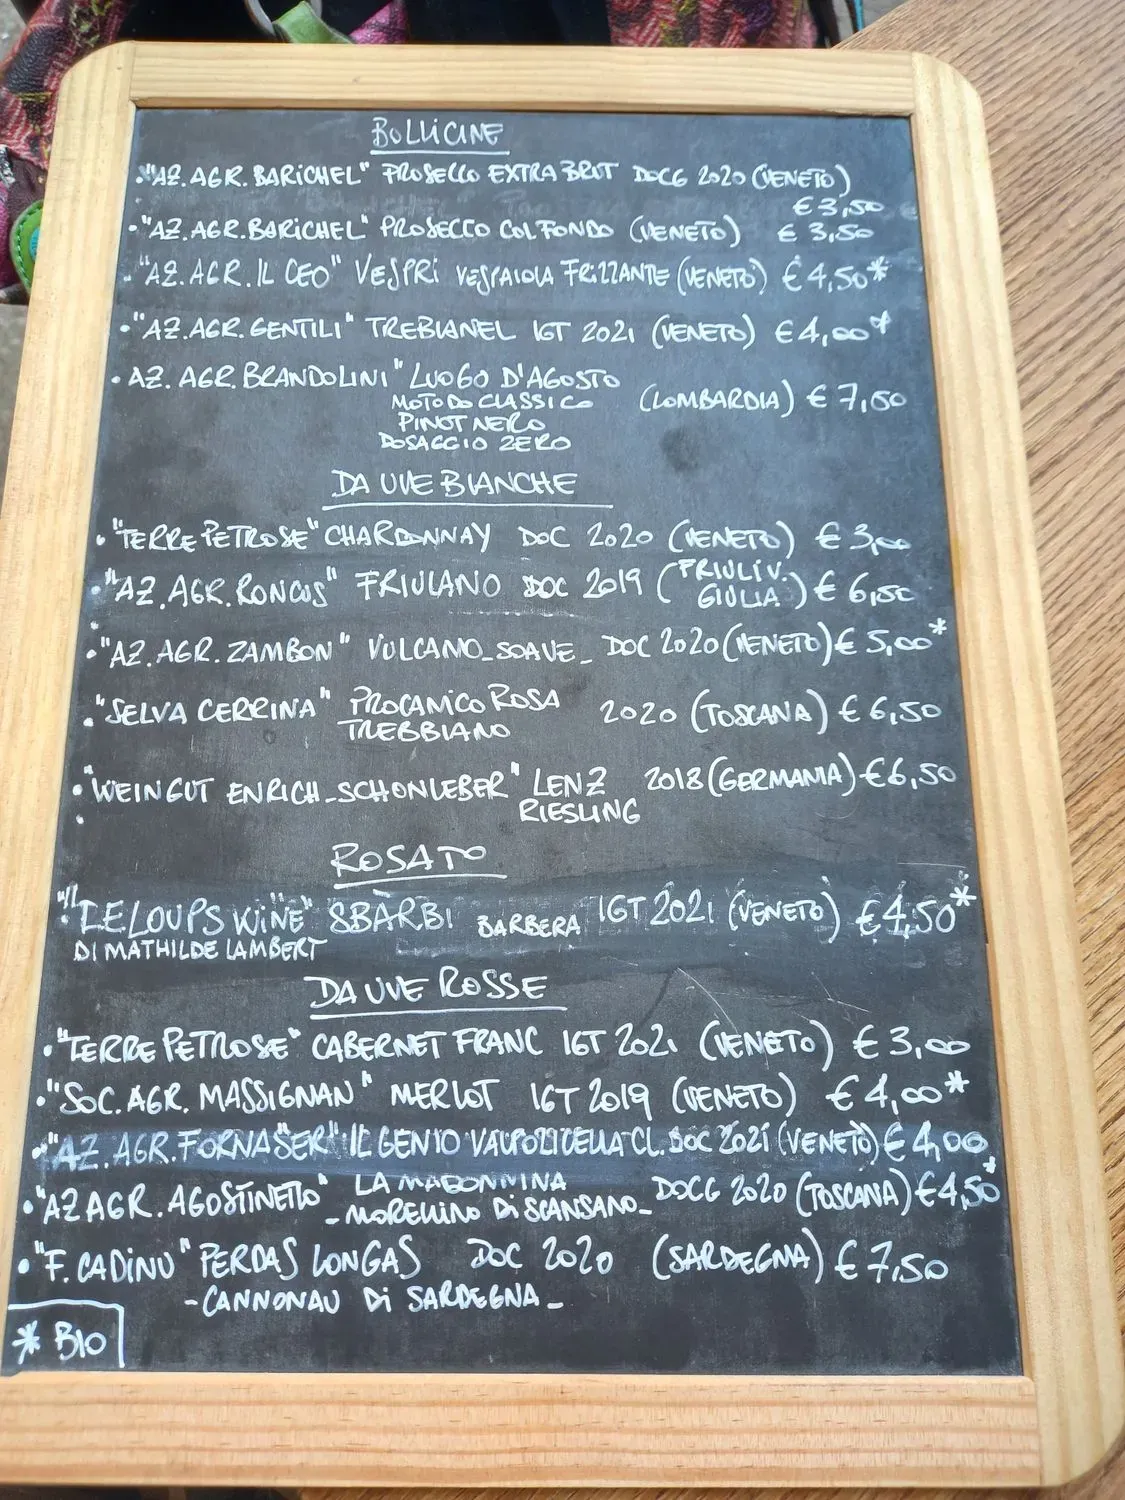 BOLLICINE
• "AZ. AGR. BARICHEL" PROSECCO EXTRA BRUT DOCG 2020 (VENETO)
€ 3,50
• "AZ. AGR. BARICHEL" PROSECCO COL FONDO (VENETO) € 3,50
• "AZ. AGR. IL CEO" VESPRI VESPAIOLA FRIZZANTE (VENETO) € 4,50*
• "AZ. AGR. GENTILI" TREBIANEL IGT 2021 (VENETO) € 4,00*
• AZ. AGR. BRANDOLINI" LUOGO D'AGOSTO
MOTODO CLASSICO (LOMBARDIA) € 7,50
PINOT NERO
DOSAGGIO ZERO
DA UVE BIANCHE
• "TERRE PETROSE" CHARDONNAY DOC 2020 (VENETO) € 3,00
• "AZ. AGR. RONCUS" FRIULANO DOC 2019 (FRIULI V. GIULIA) € 6,50
• "AZ. AGR. ZAMBON" VULCANO_SOAVE_ DOC 2020 (VENETO) € 5,00*
• "SELVA CERRINA" PROCANICO ROSA 2020 (TOSCANA) € 6,50
TREBBIANO
• "WEINGUT ENRICH_SCHONLEBER" LENZ 2018 (GERMANIA) € 6,50
RIESLING
ROSATO
• "LELOUPS WINE" SBARBI BARBERA IGT 2021 (VENETO) € 4,50*
DI MATHILDE LAMBERT
DA UVE ROSSE
• "TERRE PETROSE" CABERNET FRANC IGT 2021 (VENETO) € 3,00
• "SOC. AGR. MASSIGNAN" MERLOT IGT 2019 (VENETO) € 4,00*
• "AZ. AGR. FORNASER" IL GENIO VALPOLICELLA CL. DOC 2021 (VENETO) € 4,00
• "AZ AGR. AGOSTINETTO" LA MADONNINA DOCG 2020 (TOSCANA) € 4,50*
_ MORELLINO DI SCANSANO_
• "F. CADINU" PERDAS LONGAS DOC 2020 (SARDEGNA) € 7,50
- CANNONAU DI SARDEGNA _
* BIO